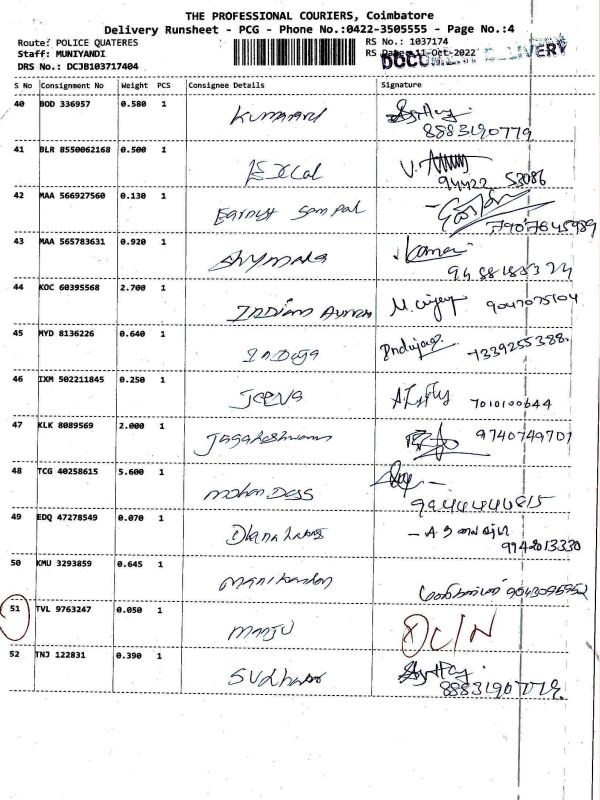 THE PROFESSIONAL COURIERS, Coimbatore
Delivery Runsheet - PCG - Phone No.:0422-3505555 - Page No.:4
Route: POLICE QUATERES
RS No.: 1037174
Staff: MUNIYANDI
RS Date: 11-Oct-2022
DOCUMENT DELIVERY
DRS No.: DCJB103717404
S No Consignment No Weight PCS Consignee Details Signature
40 BOD 336957 0.580 1
8883190779
41 BLR 8550062168 0.500 1
94422 53086
42 MAA 566927560 0.130 1 Earnest Sam pal
7907645989
43 MAA 565783631 0.920 1 Shymala
44 KOC 60395568 2.700 1 Indian
M. vijay 9047075104
45 MYD 8136226 0.640 1 Induja
Induja 7339255388
46 IXM 502211845 0.250 1 Jeena
7010100644
47 KLK 8089569 2.000 1
9740749701
48 TCG 40258615 5.600 1 mohan Dass
9944446815
49 EDQ 47278549 0.070 1 Diana
9942013330
50 KMU 3293859 0.645 1 manikandan
மணிகண்டன்
51 TVL 9763247 0.050 1 manju
52 TNJ 122831 0.390 1
8883190779